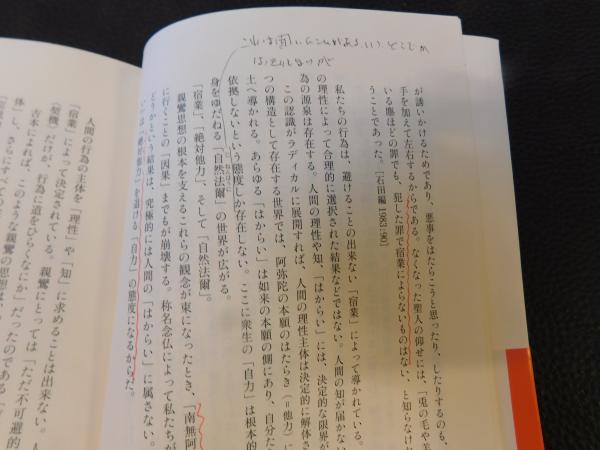 が誘いかけるためであり、悪事をはたらこうと思ったり、したりするのも、
手を加えて左右するからである。なくなった聖人の仰せには、「兎の毛や羊
いる塵ほどの罪でも、犯した罪で宿業によらないものはない、と知らなけれ
うことであった。［石田編 1983:90］
私たちの行為は、避けることの出来ない「宿業」によって導かれている。
の理性によって合理的に選択された結果などではない。人間の知が届かない
為の源泉は存在する。人間の理性や知、「はからい」には、決定的な限界が
この認識がラディカルに展開すれば、人間の理性主体は決定的に解体さ
つの構造として存在する世界では、阿弥陀の本願のはたらき（＝他力）に
土へ導かれる。あらゆる「はからい」は如来の本願の側にあり、自分た
依拠しないという態度しか存在しない。ここに衆生の「自力」は根本的
身をゆだねる「自然法爾」の世界が広がる。
「宿業」、「絶対他力」、そして「自然法爾」。
親鸞思想の根本を支えるこれらの観念が束になったとき、「南無阿
に行くことの「因果」までもが崩壊する。称名念仏によって私たちが
どうかという結果は、究極的には人間の「はからい」に属さない。
「絶対他力」を退ける「自力」の態度になるからだ。
人間の行為の主体を「理性」や「知」に求めることは出来ない。人
「宿業」によって決定されている。親鸞にとっては「ただ不可避的
〈契機〉だけが、行為に道をひらくなにか」だったのである
吉本によれば、このような親鸞の思想は
体」し、さらにすべての